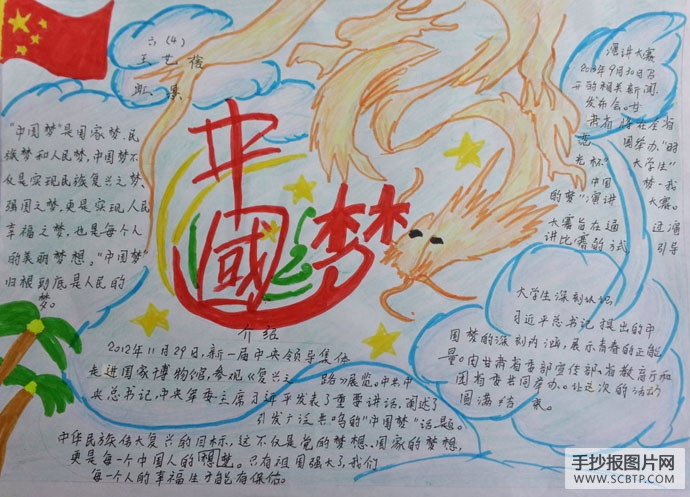 六（4）
王艺
中
國
梦
"中国梦"是国家梦、民
族梦和人民梦，中国梦不
仅是实现民族复兴之梦、
强国之梦，更是实现人民
幸福之梦，也是每个人
的美丽梦想。"中国梦"
归根到底是人民的
梦。
介绍
2012年11月29日，新一届中央领导集体
走进国家博物馆，参观《复兴之路》展览。中共中
央总书记，中央军委主席习近平发表了重要讲话，阐述了
引发广泛共鸣的"中国梦"话题。
中华民族伟大复兴的目标，这不仅是党的梦想、国家的梦想，
更是每个中国人的想梦。只有祖国强大了，我们
每个人的幸福生才能有保估。
演讲大赛
2013年9月30日召
开的相关新闻
发布会。甘
肃省将在全省
范围举办"时
光杯"大学生"
中国梦·我
的梦"演讲大赛。
大赛旨在通过演
讲比赛的方式引导
大学生深刻认识
习近平总书记提出的中
国梦的深刻内涵，展示青春的正能
量。由甘肃省委部宣传部、省教育厅和
团省委共同举办。让这次的活动
圆满结束。
手抄报图片网
WWW.SCBTP.COM